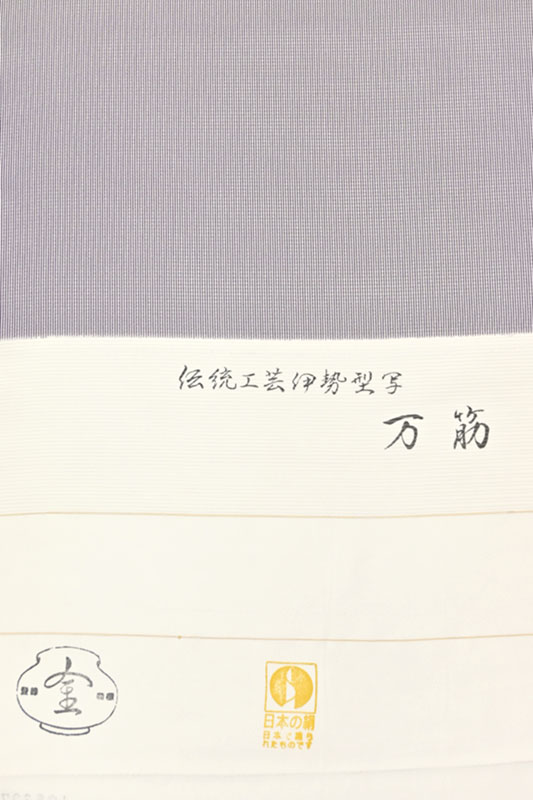 伝統工芸伊勢型写
万筋
金
日本の絹
日本で織ら
れたものです